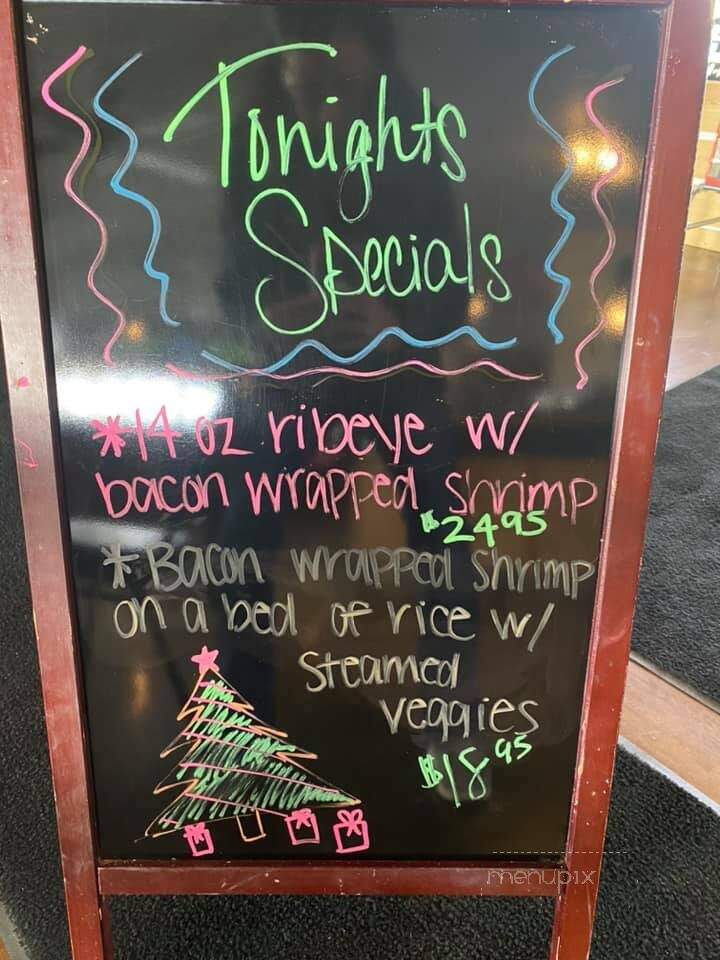 Tonights
Specials
*14 oz ribeye w/
bacon wrapped shrimp
$24.95
*Bacon wrapped shrimp
on a bed of rice w/
Steamed
veggies
$18.95
menupix